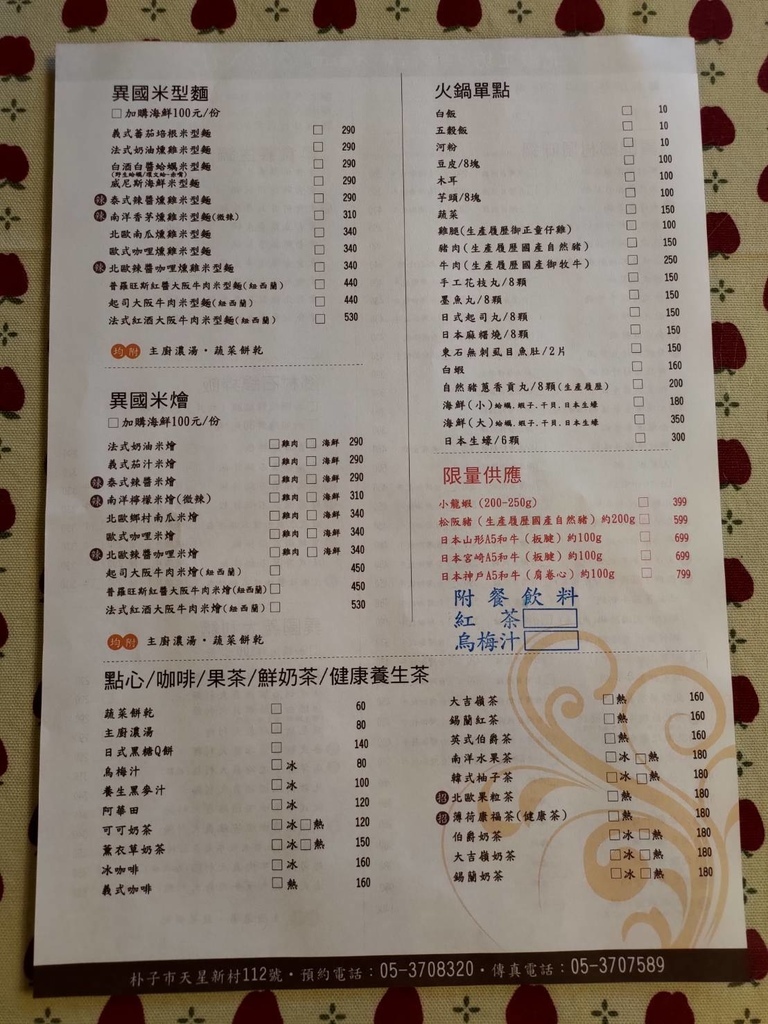 異國米型麵
□加購海鮮100元/份
義式蕃茄培根米型麵 □ 290
法式奶油燻雞米型麵 □ 290
白酒白醬蛤蠣米型麵 □ 290
威尼斯海鮮米型麵 □ 290
辣 泰式辣醬燻雞米型麵 □ 290
辣 南洋香茅燻雞米型麵(微辣) □ 310
北歐南瓜燻雞米型麵 □ 340
歐式咖哩燻雞米型麵 □ 340
辣 北歐辣醬咖哩燻雞米型麵 □ 340
普羅旺斯紅醬大阪牛肉米型麵(紐西蘭) □ 440
起司大阪牛肉米型麵(紐西蘭) □ 440
法式紅酒大阪牛肉米型麵(紐西蘭) □ 530
均附 主廚濃湯・蔬菜餅乾
異國米燴
□加購海鮮100元/份
法式奶油米燴 □雞肉 □海鮮 290
義式茄汁米燴 □雞肉 □海鮮 290
辣 泰式辣醬米燴 □雞肉 □海鮮 290
辣 南洋檸檬米燴(微辣) □雞肉 □海鮮 310
北歐鄉村南瓜米燴 □雞肉 □海鮮 340
歐式咖哩米燴 □雞肉 □海鮮 340
辣 北歐辣醬咖哩米燴 □雞肉 □海鮮 340
起司大阪牛肉米燴(紐西蘭) □ 450
普羅旺斯紅醬大阪牛肉米燴(紐西蘭) □ 450
法式紅酒大阪牛肉米燴(紐西蘭) □ 530
均附 主廚濃湯・蔬菜餅乾
火鍋單點
白飯 □ 10
五穀飯 □ 10
河粉 □ 10
豆皮/8塊 □ 100
木耳 □ 100
芋頭/8塊 □ 100
蔬菜 □ 150
雞腿(生產履歷御正童仔雞) □ 100
豬肉(生產履歷國產自然豬) □ 150
牛肉(生產履歷國產御牧牛) □ 250
手工花枝丸/8顆 □ 150
墨魚丸/8顆 □ 150
日式起司丸/8顆 □ 150
日本麻糬燒/8顆 □ 150
東石無刺虱目魚肚/2片 □ 150
白蝦 □ 160
自然豬蔥香貢丸/8顆(生產履歷) □ 200
海鮮(小)蛤蠣、蝦子、干貝、日本生蠔 □ 180
海鮮(大)蛤蠣、蝦子、干貝、日本生蠔 □ 350
日本生蠔/6顆 □ 300
限量供應
小龍蝦 (200-250g) □ 399
松阪豬(生產履歷國產自然豬)約200g □ 599
日本山形A5和牛(板腱)約100g □ 699
日本宮崎A5和牛(板腱)約100g □ 699
日本神戶A5和牛(肩卷心)約100g □ 799
附餐飲料
紅 茶
烏梅汁
點心/咖啡/果茶/鮮奶茶/健康養生茶
蔬菜餅乾 □ 60
主廚濃湯 □ 80
日式黑糖Q餅 □ 140
烏梅汁 □冰 80
養生黑麥汁 □冰 100
阿華田 □冰 120
可可奶茶 □冰□熱 120
薰衣草奶茶 □冰□熱 150
冰咖啡 □冰 160
義式咖啡 □熱 160
大吉嶺茶 □熱 160
錫蘭紅茶 □熱 160
英式伯爵茶 □熱 160
南洋水果茶 □冰□熱 180
韓式柚子茶 □冰□熱 180
招 北歐果粒茶 □熱 180
招 薄荷康福茶(健康茶) □熱 180
伯爵奶茶 □冰□熱 180
大吉嶺奶茶 □冰□熱 180
錫蘭奶茶 □冰□熱 180
朴子市天星新村112號・預約電話：05-3708320・傳真電話：05-3707589